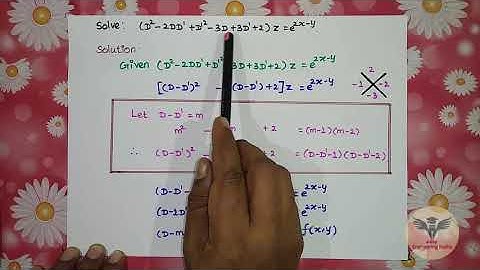 Solve: (D²-2DD'+D'²-3D+3D'+2) z = e^2x-y
Solution:
Given (D²-2DD'+D'² 3D+3D'+2) z = e^2x-y
[(D-D')² - (D-D')+2] z = e^2x-y
2
-1 -2
-3
Let D-D' = m
m² - m + 2 = (m-1)(m-2)
∴ (D-D')² + 2 = (D-D'-1)(D-D'-2)
(D-D'- = e^2x-y
(D-1D' = e^2x-y
(D-m f(x,y)